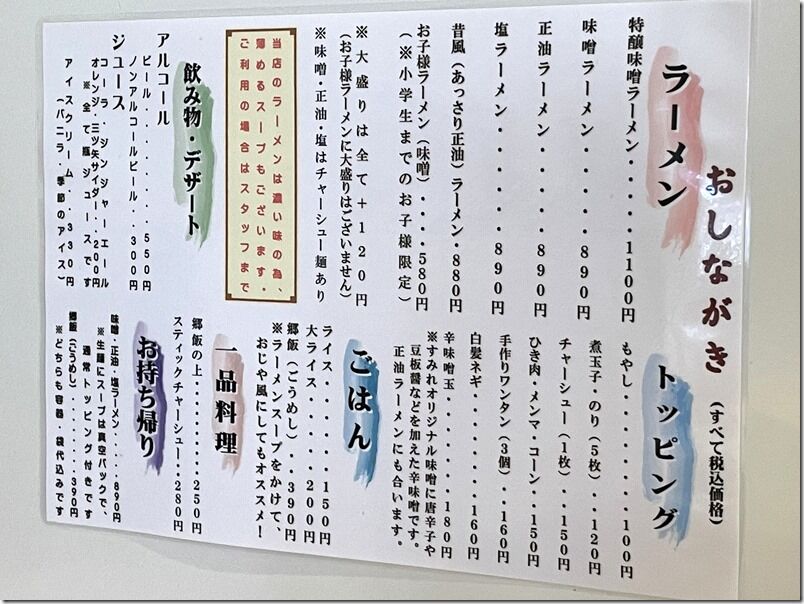 おしながき
(すべて税込価格)
ラーメン
特醸味噌ラーメン・・・・・1100円
味噌ラーメン・・・・・・・890円
正油ラーメン・・・・・・・890円
塩ラーメン・・・・・・・・890円
昔風(あっさり正油)ラーメン・880円
お子様ラーメン(味噌)・・・・580円
(※小学生までのお子様限定)
※大盛りは全て+120円
(お子様ラーメンに大盛りはございません)
※味噌・正油・塩はチャーシュー麺あり
当店のラーメンは濃い味の為、
薄めるスープもございます。
ご利用の場合はスタッフまで
飲み物・デザート
アルコール
ビール・・・・・・・・550円
ノンアルコールビール・・300円
ジュース
コーラ・ジンジャーエール
オレンジ・三ツ矢サイダー・・200円
※全て瓶ジュースです
アイスクリーム・・・330円
(バニラ・季節のアイス)
トッピング
もやし・・・・・・・・・・100円
煮玉子・のり(5枚)・・・120円
チャーシュー(1枚)・・・150円
ひき肉・メンマ・コーン・・・150円
手作りワンタン(3個)・・160円
白髪ネギ・・・・・・・・・160円
辛味噌玉・・・・・・・・・180円
※すみれオリジナル味噌に唐辛子や
豆板醤などを加えた辛味噌です。
正油ラーメンにも合います。
ごはん
ライス・・・・・・・150円
大ライス・・・・・・200円
郷飯(ごうめし)・・・390円
※ラーメンスープをかけて、
おじや風にしてもオススメ!
一品料理
郷飯の上・・・・・・・・・250円
スティックチャーシュー・・280円
お持ち帰り
味噌・正油・塩ラーメン・・・・890円
※生麺にスープは真空パックで、
通常トッピング付きです
郷飯(ごうめし)・・・・・・・390円
※どちらも容器・袋代込みです